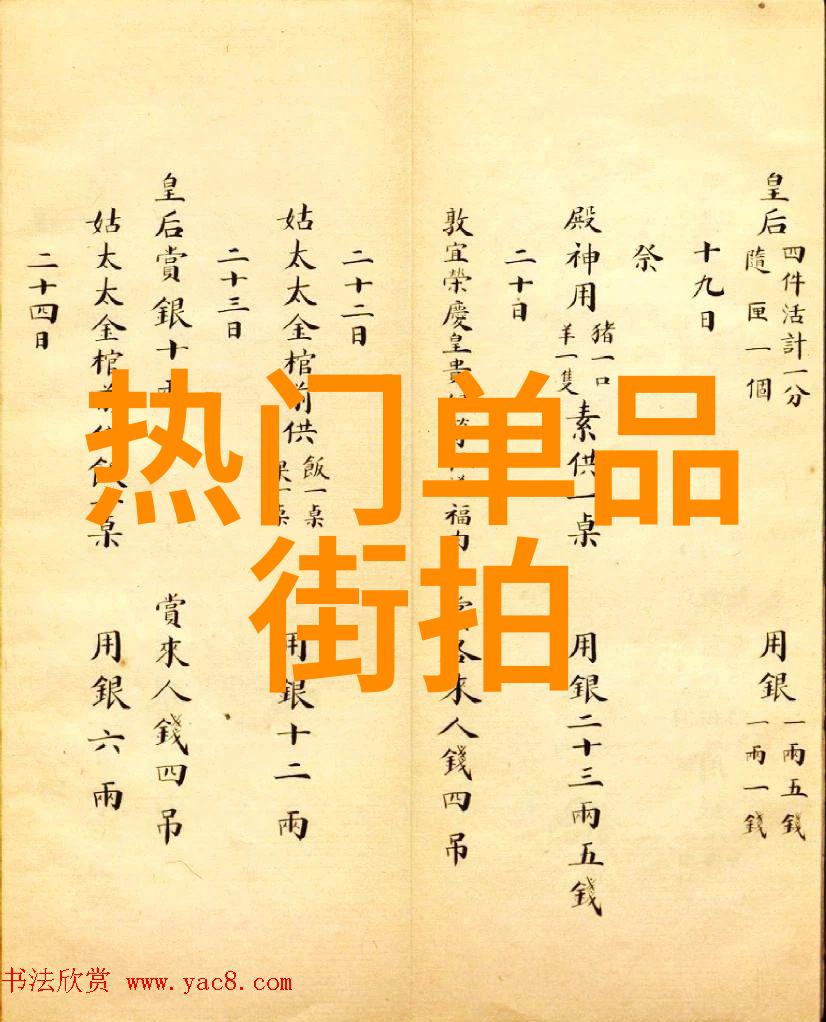 皇后四件活計一分隨匣一個 用銀一兩五錢一兩一錢
十九日
祭
殿神用猪一口羊一隻素供一桌 用銀二十三兩五錢
二十日
敦宜榮慶皇貴 福 各來人錢四吊
二十二日
姑太太金棺前供飯一桌一桌 用銀十二兩
二十三日
皇后賞銀十 賞來人錢四吊
姑太太金棺飯桌 用銀六兩
二十四日
热门单品
街拍
书法欣赏 www.yac8.com